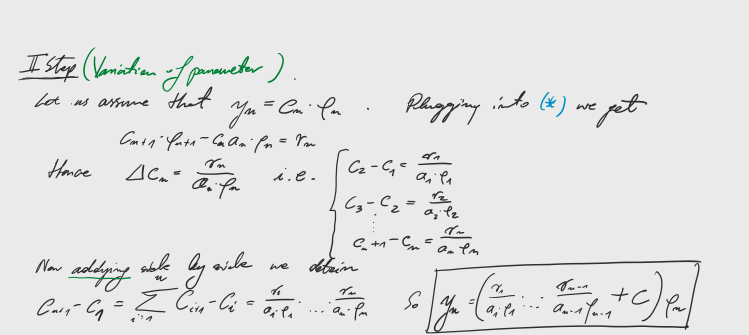 II Step (Variation of parameter).
Let us assume that yₙ = Cₙ · φₙ . Plugging into (*) we get
Cₙ₊₁ · φₙ₊₁ − Cₙ aₙ · φₙ = rₙ
Hence ΔCₙ = rₙ / (aₙ · φₙ) i.e. { C₂ − C₁ = r₁ / (a₁ · φ₁)
C₃ − C₂ = r₂ / (a₂ · φ₂)
⋮
Cₙ₊₁ − Cₙ = rₙ / (aₙ · φₙ)
Now addying side by side we obtain
Cₙ₊₁ − C₁ = ∑ᵢ₌₁ⁿ Cᵢ₊₁ − Cᵢ = r₁ / (a₁ · φ₁) · … · rₙ / (aₙ · φₙ) So yₙ = ( r₁ / (a₁ · φ₁) … rₙ₋₁ / (aₙ₋₁ · φₙ₋₁) + C ) φₙ